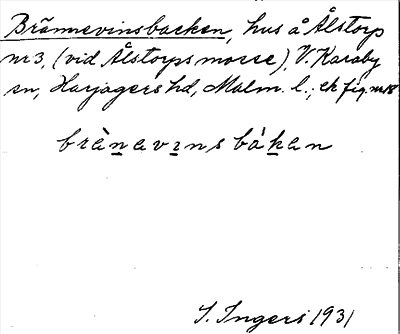 Brännevinsbacken, hus å Ålstorp
nr 3, (vid Ålstorps mosse), V. Karaby
sn, Harjagers hd, Malm. l.; ek fig. nr 18
brànavins bákan
S. Ingers 1931